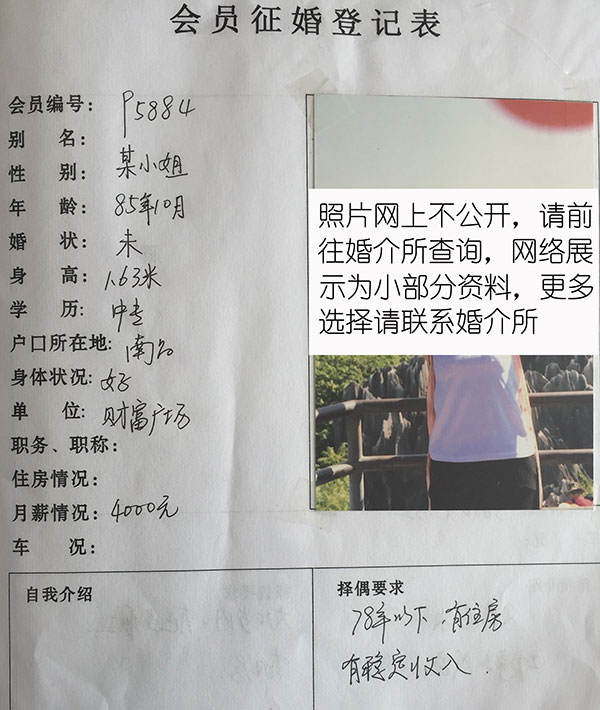 会员征婚登记表
会员编号: P5884
别 名:
性 别: 某小姐
年 龄: 85年10月
婚 状: 未
身 高: 1.63米
学 历: 中专
户口所在地: 南名
身体状况: 好
单 位: 财富广场
职务、职称:
住房情况:
月薪情况: 4000元
车 况:
照片网上不公开，请前
往婚介所查询，网络展
示为小部分资料，更多
选择请联系婚介所
自我介绍
择偶要求
78年以下 有住房
有稳定收入.